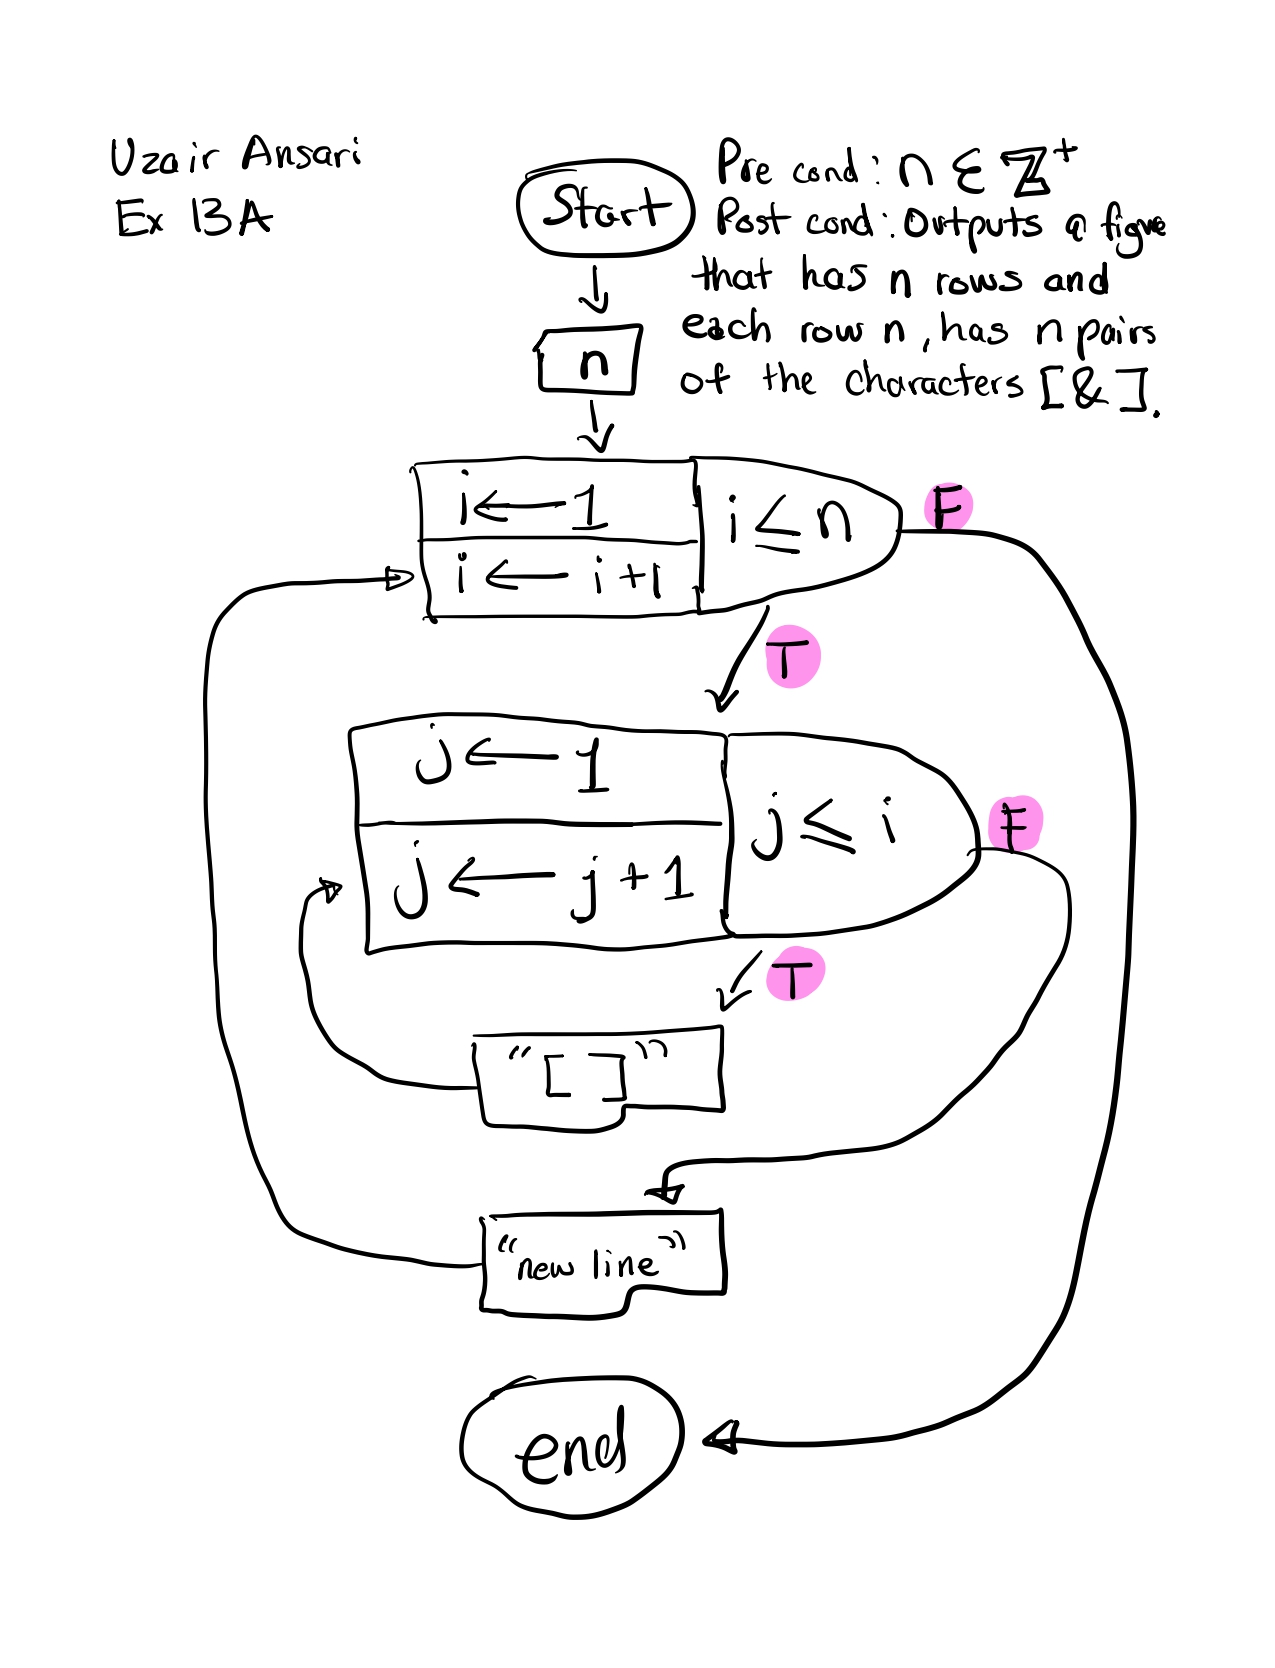 Uzair Ansari
Ex 13A
Start
Pre cond: n ∈ ℤ⁺
Post cond: Outputs a figure
that has n rows and
each row n, has n pairs
of the characters [&].
n
i ← 1
i ≤ n
F
i ← i+1
T
j ← 1
j ≤ i
F
j ← j+1
T
"[ ]"
"new line"
end